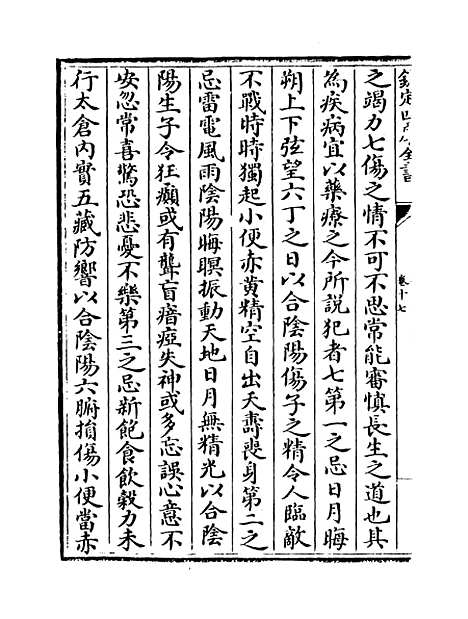 欽定四庫全書
卷十七
之竭力七傷之情不可不思常能審慎長生之道也其
為疾病宜以藥療之今所説犯者七第一之忌日月晦
朔上下弦望六丁之日以合陰陽傷子之精令人臨敵
不戰時時獨起小便赤黄精空自出夭壽喪身第二之
忌雷電風雨陰陽晦暝振動天地日月無精光以合陰
陽生子令狂癲或有聾盲瘖瘂失神或多忘誤心意不
安忽常喜驚恐悲憂不樂第三之忌新飽食飲穀力未
行太倉内實五藏防響以合陰陽六腑損傷小便當赤